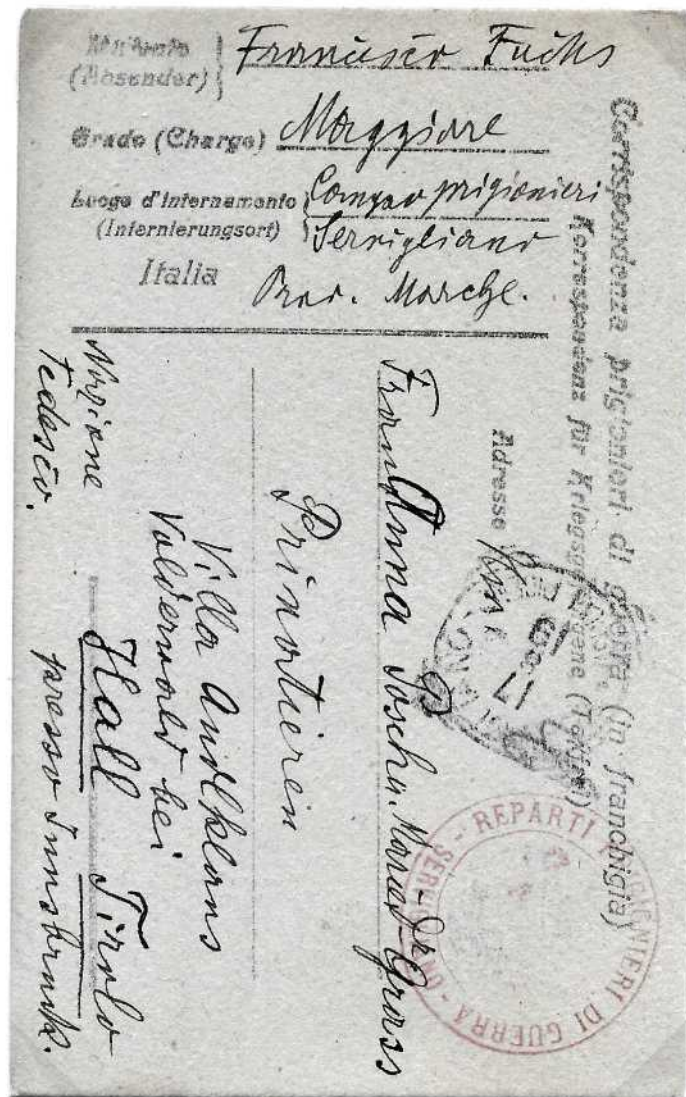 Mittente
(Absender)
Francesco Fuchs
Grado (Charge) Maggiore
Luogo d'internamento
(Internierungsort)
Campo prigionieri
Servigliano
Italia
Prov. Marche.
Corrispondenza prigionieri di guerra (in franchigia)
Korrespondenz für Kriegsgefangene (Taxfrei)
Adresse
Frau Anna
Gross
Privatieren
Villa
Volderwald bei
Hall Tirolo
presso Innsbruck.
Nazione
Tedesco.
REPARTI PRIGIONIERI DI GUERRA - SERVIGLIANO